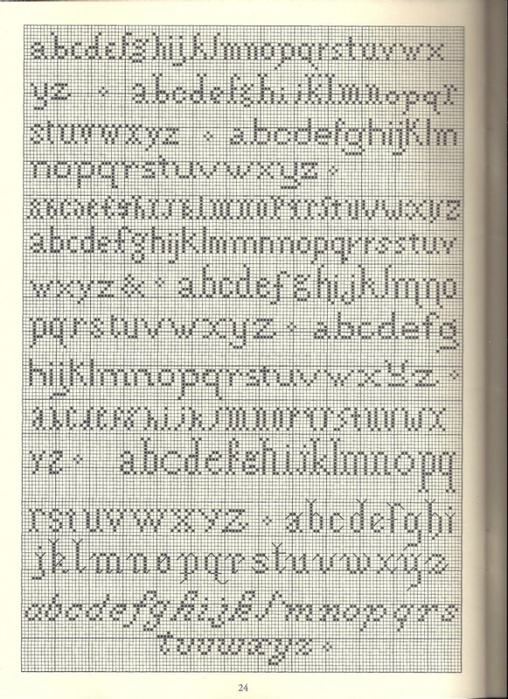 abcdefghijklmnopqrstuvwx
yz abcdefghijklmnopqr
stuvwxyz abcdefghijklm
nopqrstuvwxyz
abcdefghijklmnopqrrstuvwxyz
abcdefghijklmmnnopqrrsstuv
wxyz& abcdefghijklmno
pqrstuvwxyz abcdefg
hijklmnopqrstuvwxyz
abcdefghijklmnopqrrstuvwx
yz abcdefghijklmnopq
rstuvwxyz abcdefghi
jklmnopqrstuvwxyz
abcdefghijklmnopqrs
tuvwxyz
24